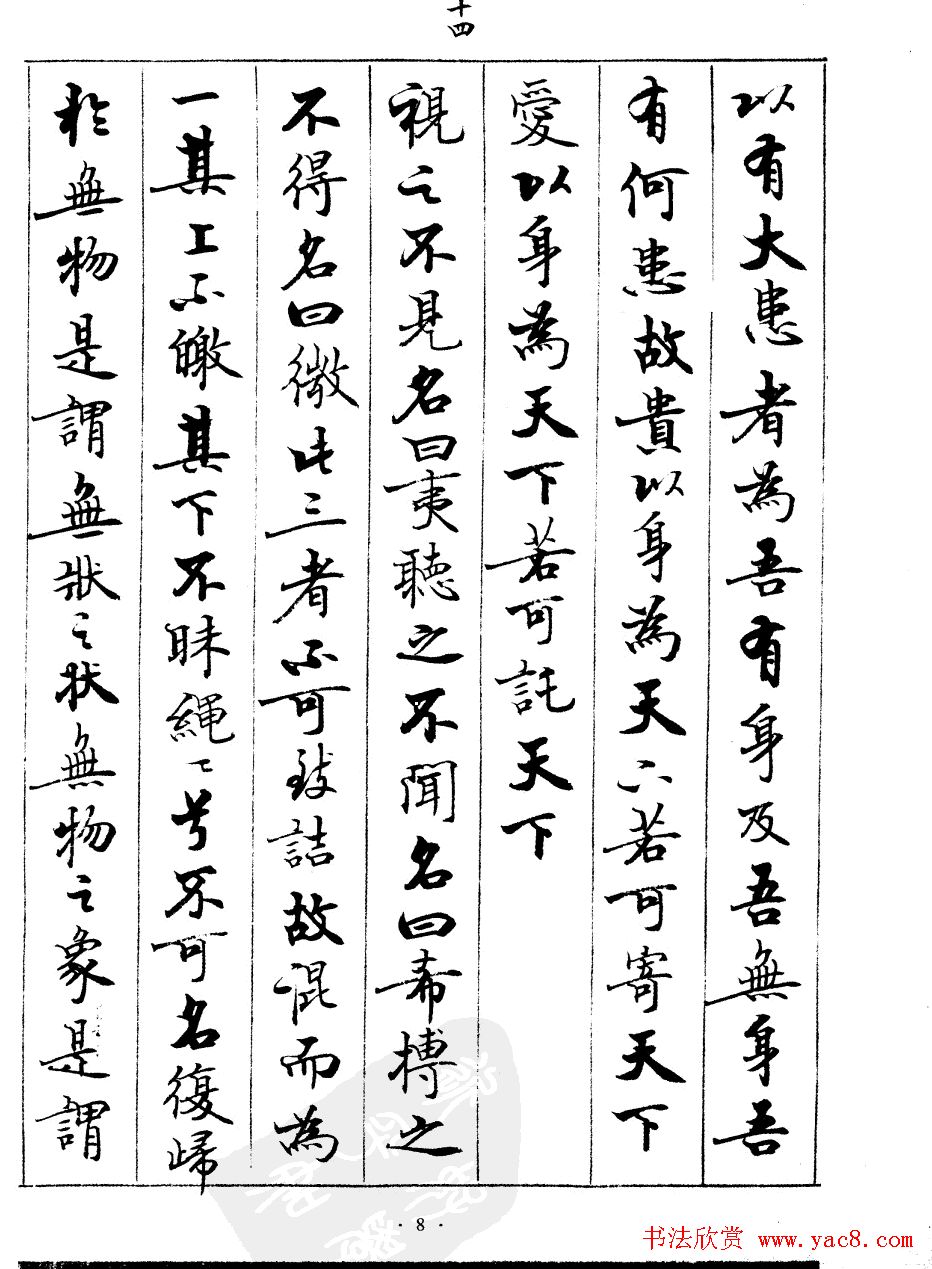 十四
以有大患者為吾有身及吾無身吾
有何患故貴以身為天下若可寄天下
愛以身為天下若可託天下
視之不見名曰夷聽之不聞名曰希搏之
不得名曰微此三者不可致詰故混而為
一其上不皦其下不昧繩〻兮不可名復歸
於無物是謂無狀之狀無物之象是謂
· 8 ·
书法欣赏 www.yac8.com